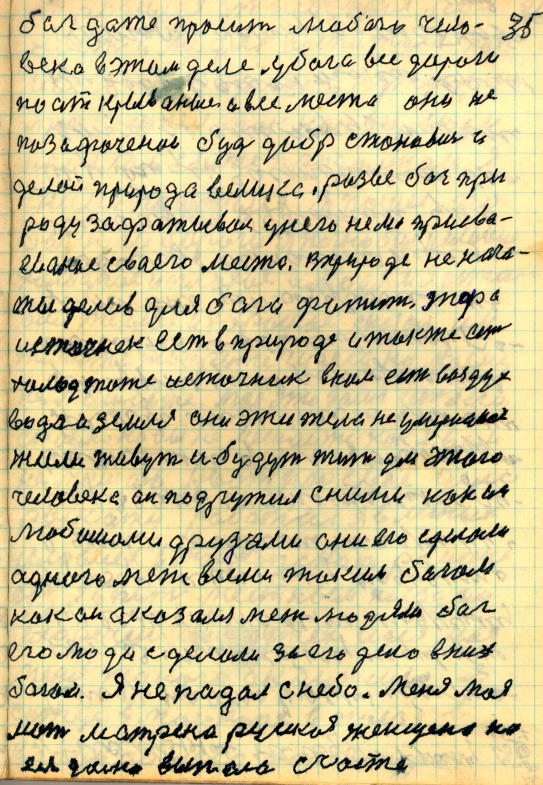 бог даже просит любого чело- 35
века в этом деле, у бога все дороги
пооткрываные а все места они не
позафачены буд добр становис и
делой природа велика. разве бог при
роду зафативал у него нема присва-
евание своего место. В природе не нача-
тых делов для бога фатит. жара
источнек ест в природе и также ест
холод тоже источник в ком ест воздух
вода и земля они эти тела не умирают
жили живут и будут жит для этого
человека он подружил с ними как он
любошоми друзями они его сделали
адного меж всеми таким богом
как он аказаля меж людями бог
его люди сделали за его дело в них
богом. Я не падал с небо. Меня моя
мат матрена руская женщена на
ея долю выпала счастя